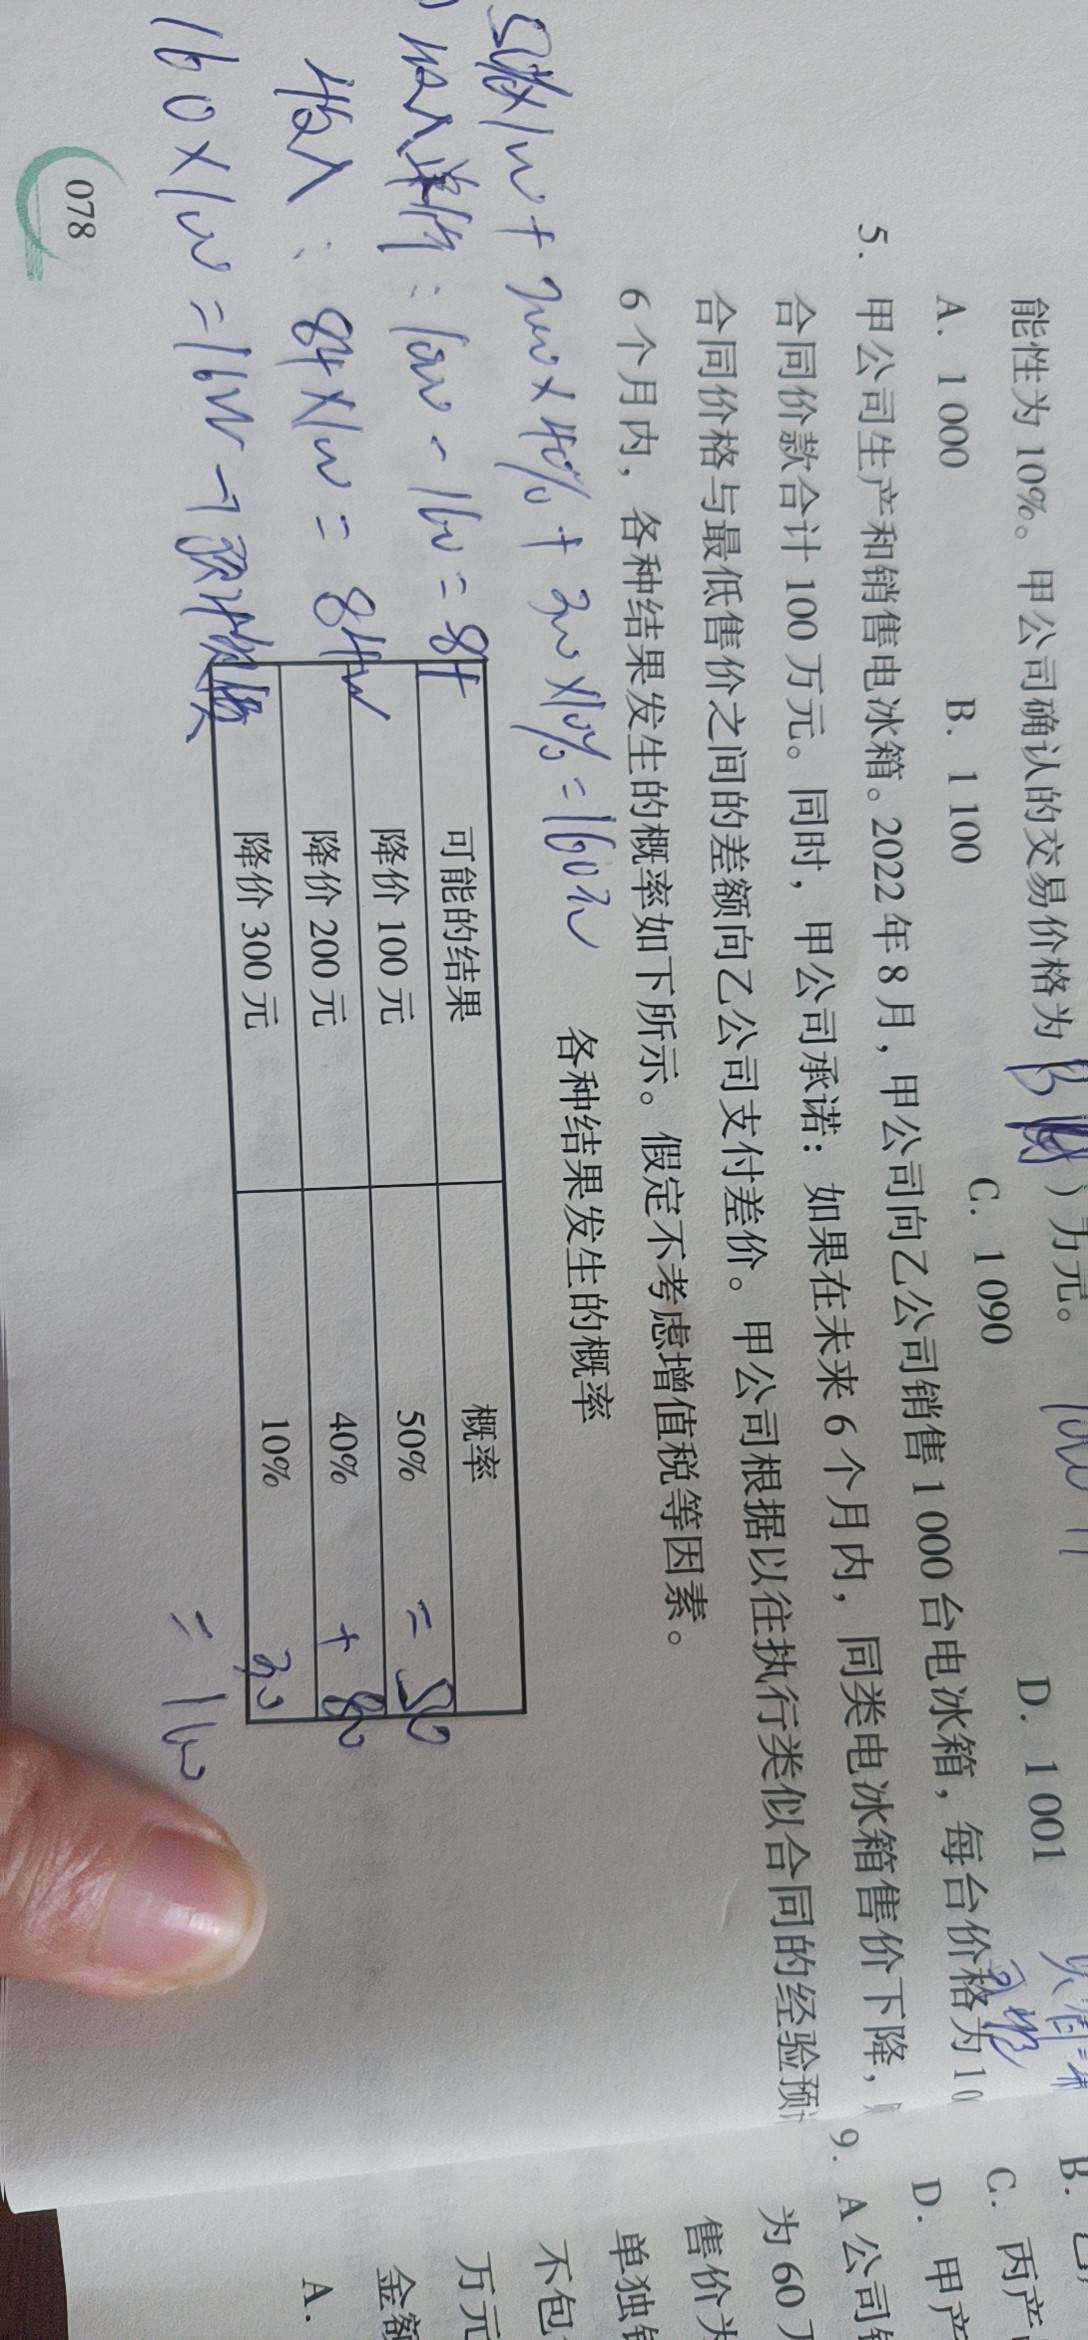 能性为10%。甲公司确认的交易价格为（B）万元。
A. 1 000 B. 1 100 C. 1 090 D. 1 001
5. 甲公司生产和销售电冰箱。2022年8月，甲公司向乙公司销售1 000台电冰箱，每台价格为10
合同价款合计100万元。同时，甲公司承诺：如果在未来6个月内，同类电冰箱售价下降，
合同价格与最低售价之间的差额向乙公司支付差价。甲公司根据以往执行类似合同的经验预
6个月内，各种结果发生的概率如下所示。假定不考虑增值税等因素。
各种结果发生的概率
+ 200×40% + 300×10% = 160元
可能的结果 概率
降价100元 50% = 50
降价200元 40% + 80
降价300元 10% 30
= 160
收入单价：1000 - 160 = 84
收入：84×1000 = 84w
160×1000 = 16w → 预计负债
078
B.
C. 丙产
D. 甲产
9. A公司
为60
售价为
单独
不包
万元
金额
A.